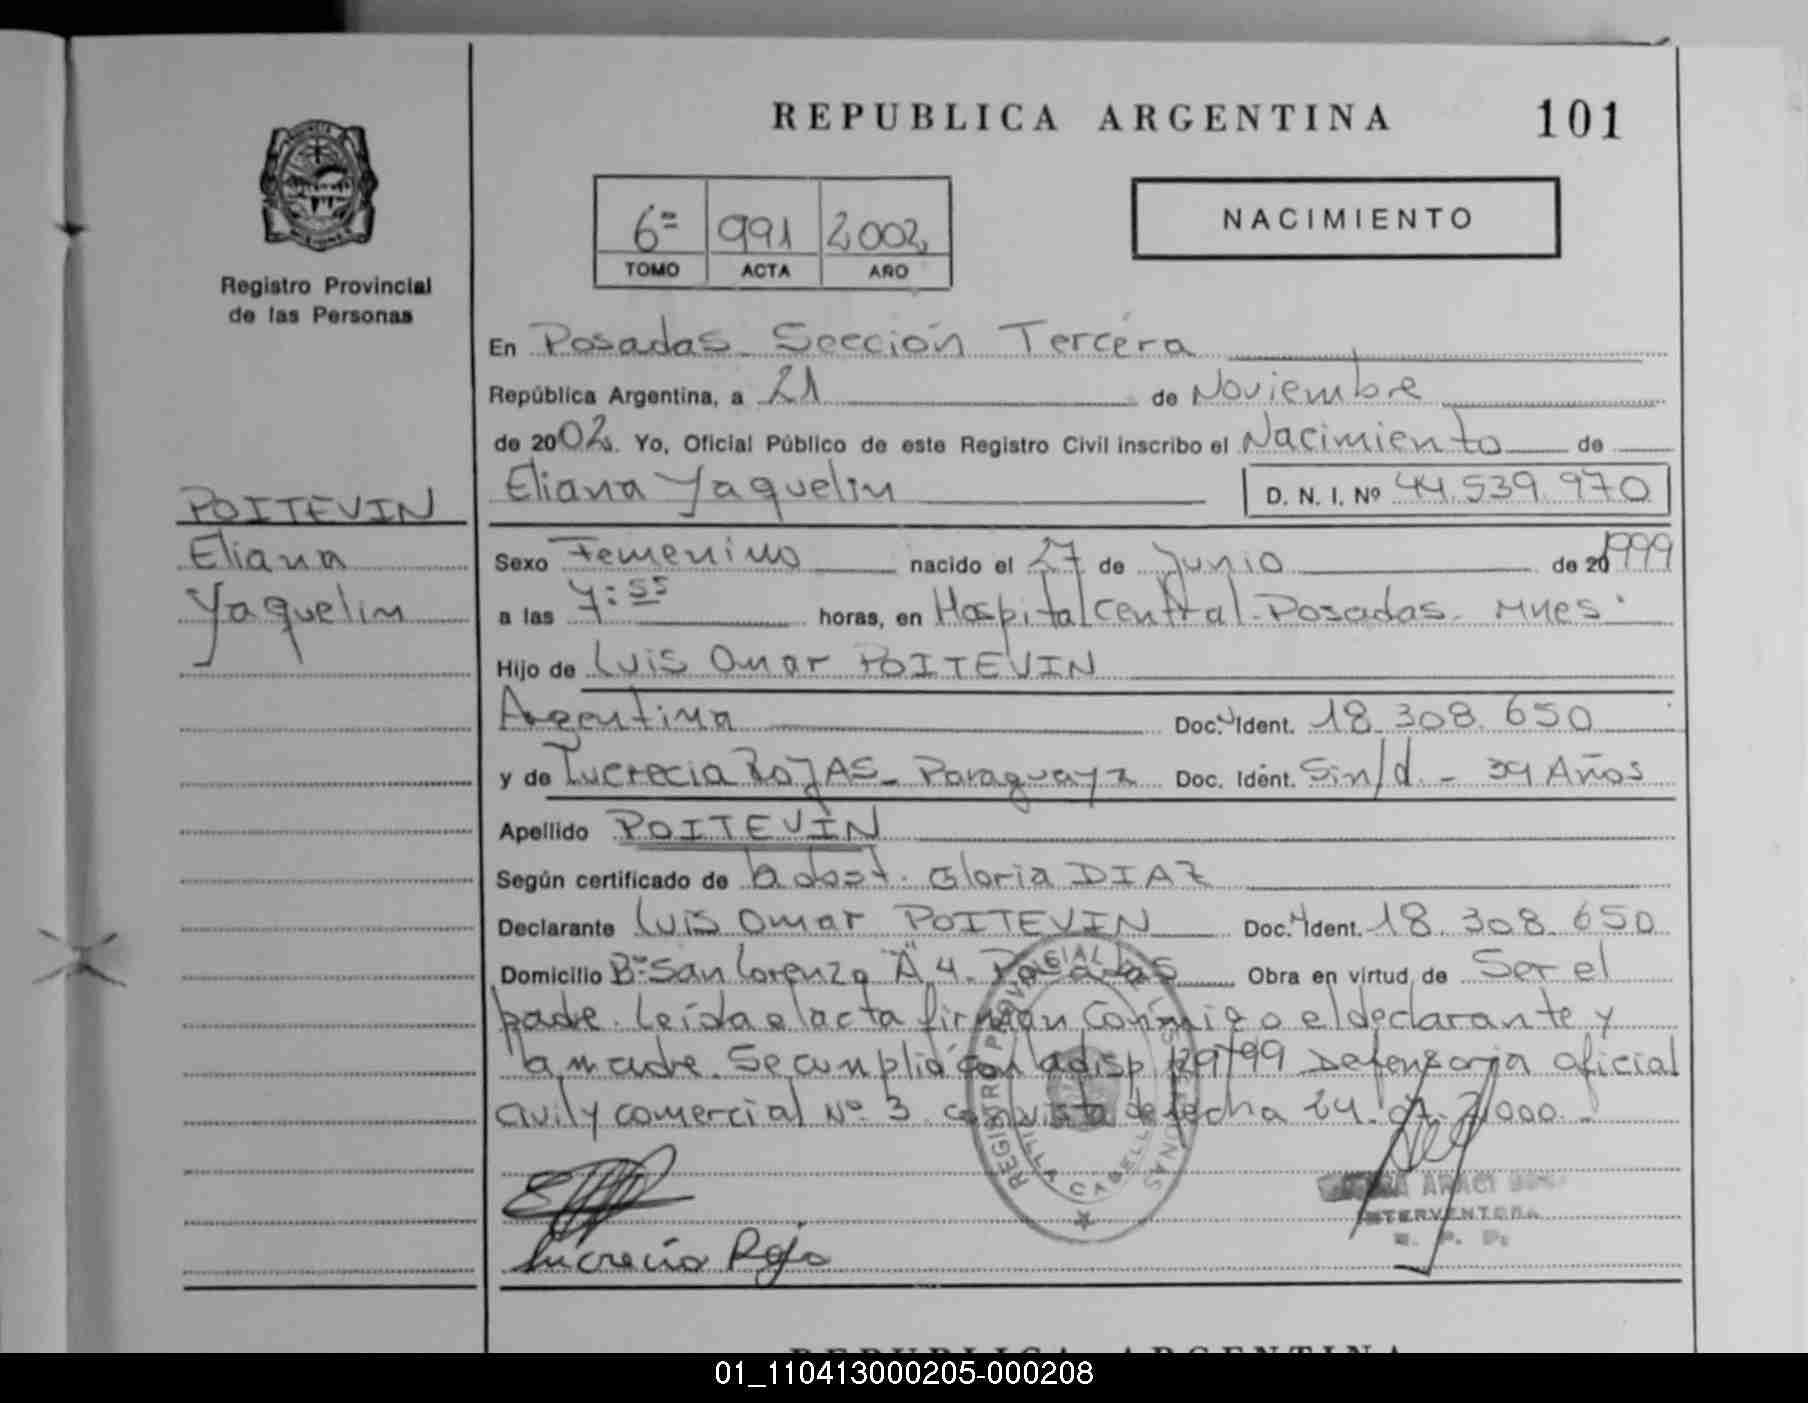 REPUBLICA ARGENTINA 101
6ª 991 2002
TOMO ACTA AÑO
NACIMIENTO
Registro Provincial
de las Personas
En Posadas Sección Tercera
República Argentina, a 21 de Noviembre
de 2002. Yo, Oficial Público de este Registro Civil inscribo el Nacimiento de
Eliana Yaquelin D. N. I. Nº 44.539.970
POITEVIN
Eliana
Yaquelin
Sexo Femenino nacido el 27 de Junio de 20 1999
a las 7:55 horas, en Hospital Central. Posadas. Mnes.
Hijo de Luis Omar POITEVIN
Argentina Doc. Ident. 18.308.650
y de Lucrecia ROJAS - Paraguaya Doc. Ident. Sin/d. - 34 Años
Apellido POITEVIN
Según certificado de la obst. Gloria DIAZ
Declarante Luis Omar POITEVIN Doc. Ident. 18.308.650
Domicilio Bº San Lorenzo "A" 4. Posadas Obra en virtud de Ser el
padre. Leída el acta firman Conmigo el declarante y
la madre. Se cumplió con la disp 129/99 Defensoria oficial
civil y comercial Nº 3. con vista de fecha 24. 07. 2000. -
REGISTRO PROVINCIAL DE LAS PERSONAS
VILLA CABELLO
ARACI
INTERVENTORA
R. P. P.
Lucrecia Rojas
REPUBLICA ARGENTINA
01_110413000205-000208